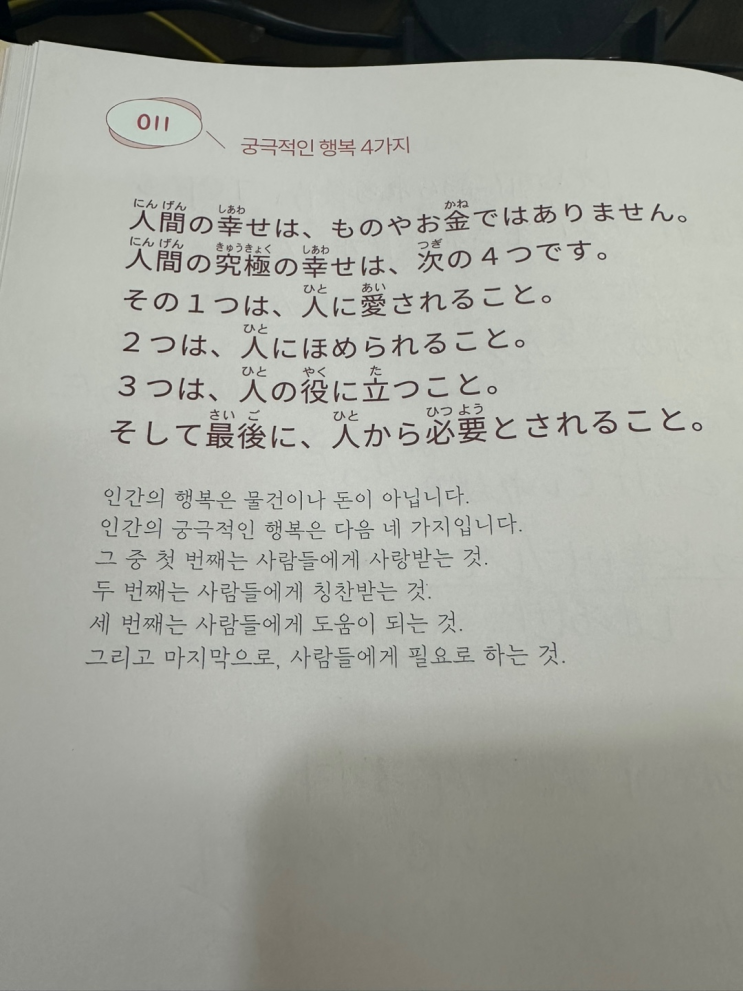 011
궁극적인 행복 4가지
にんげん しあわ かね
人間の幸せは、ものやお金ではありません。
にんげん きゅうきょく しあわ つぎ
人間の究極の幸せは、次の4つです。
ひと あい
その1つは、人に愛されること。
ひと
2つは、人にほめられること。
ひと やく た
3つは、人の役に立つこと。
さいご ひと ひつよう
そして最後に、人から必要とされること。
인간의 행복은 물건이나 돈이 아닙니다.
인간의 궁극적인 행복은 다음 네 가지입니다.
그 중 첫 번째는 사람들에게 사랑받는 것.
두 번째는 사람들에게 칭찬받는 것.
세 번째는 사람들에게 도움이 되는 것.
그리고 마지막으로, 사람들에게 필요로 하는 것.